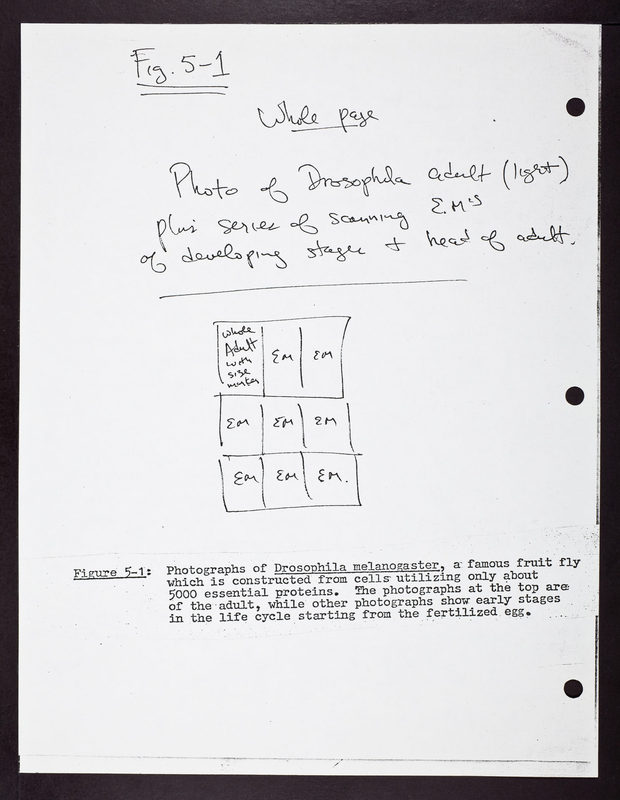 Fig. 5-1
Whole page
Photo of Drosophila adult (light)
plus series of scanning E.M's
of developing stages + head of adult.
whole
Adult
with
size
marker
EM
EM
EM
EM
EM
EM
EM
EM.
Figure 5-1: Photographs of Drosophila melanogaster, a famous fruit fly
which is constructed from cells utilizing only about
5000 essential proteins. The photographs at the top are
of the adult, while other photographs show early stages
in the life cycle starting from the fertilized egg.